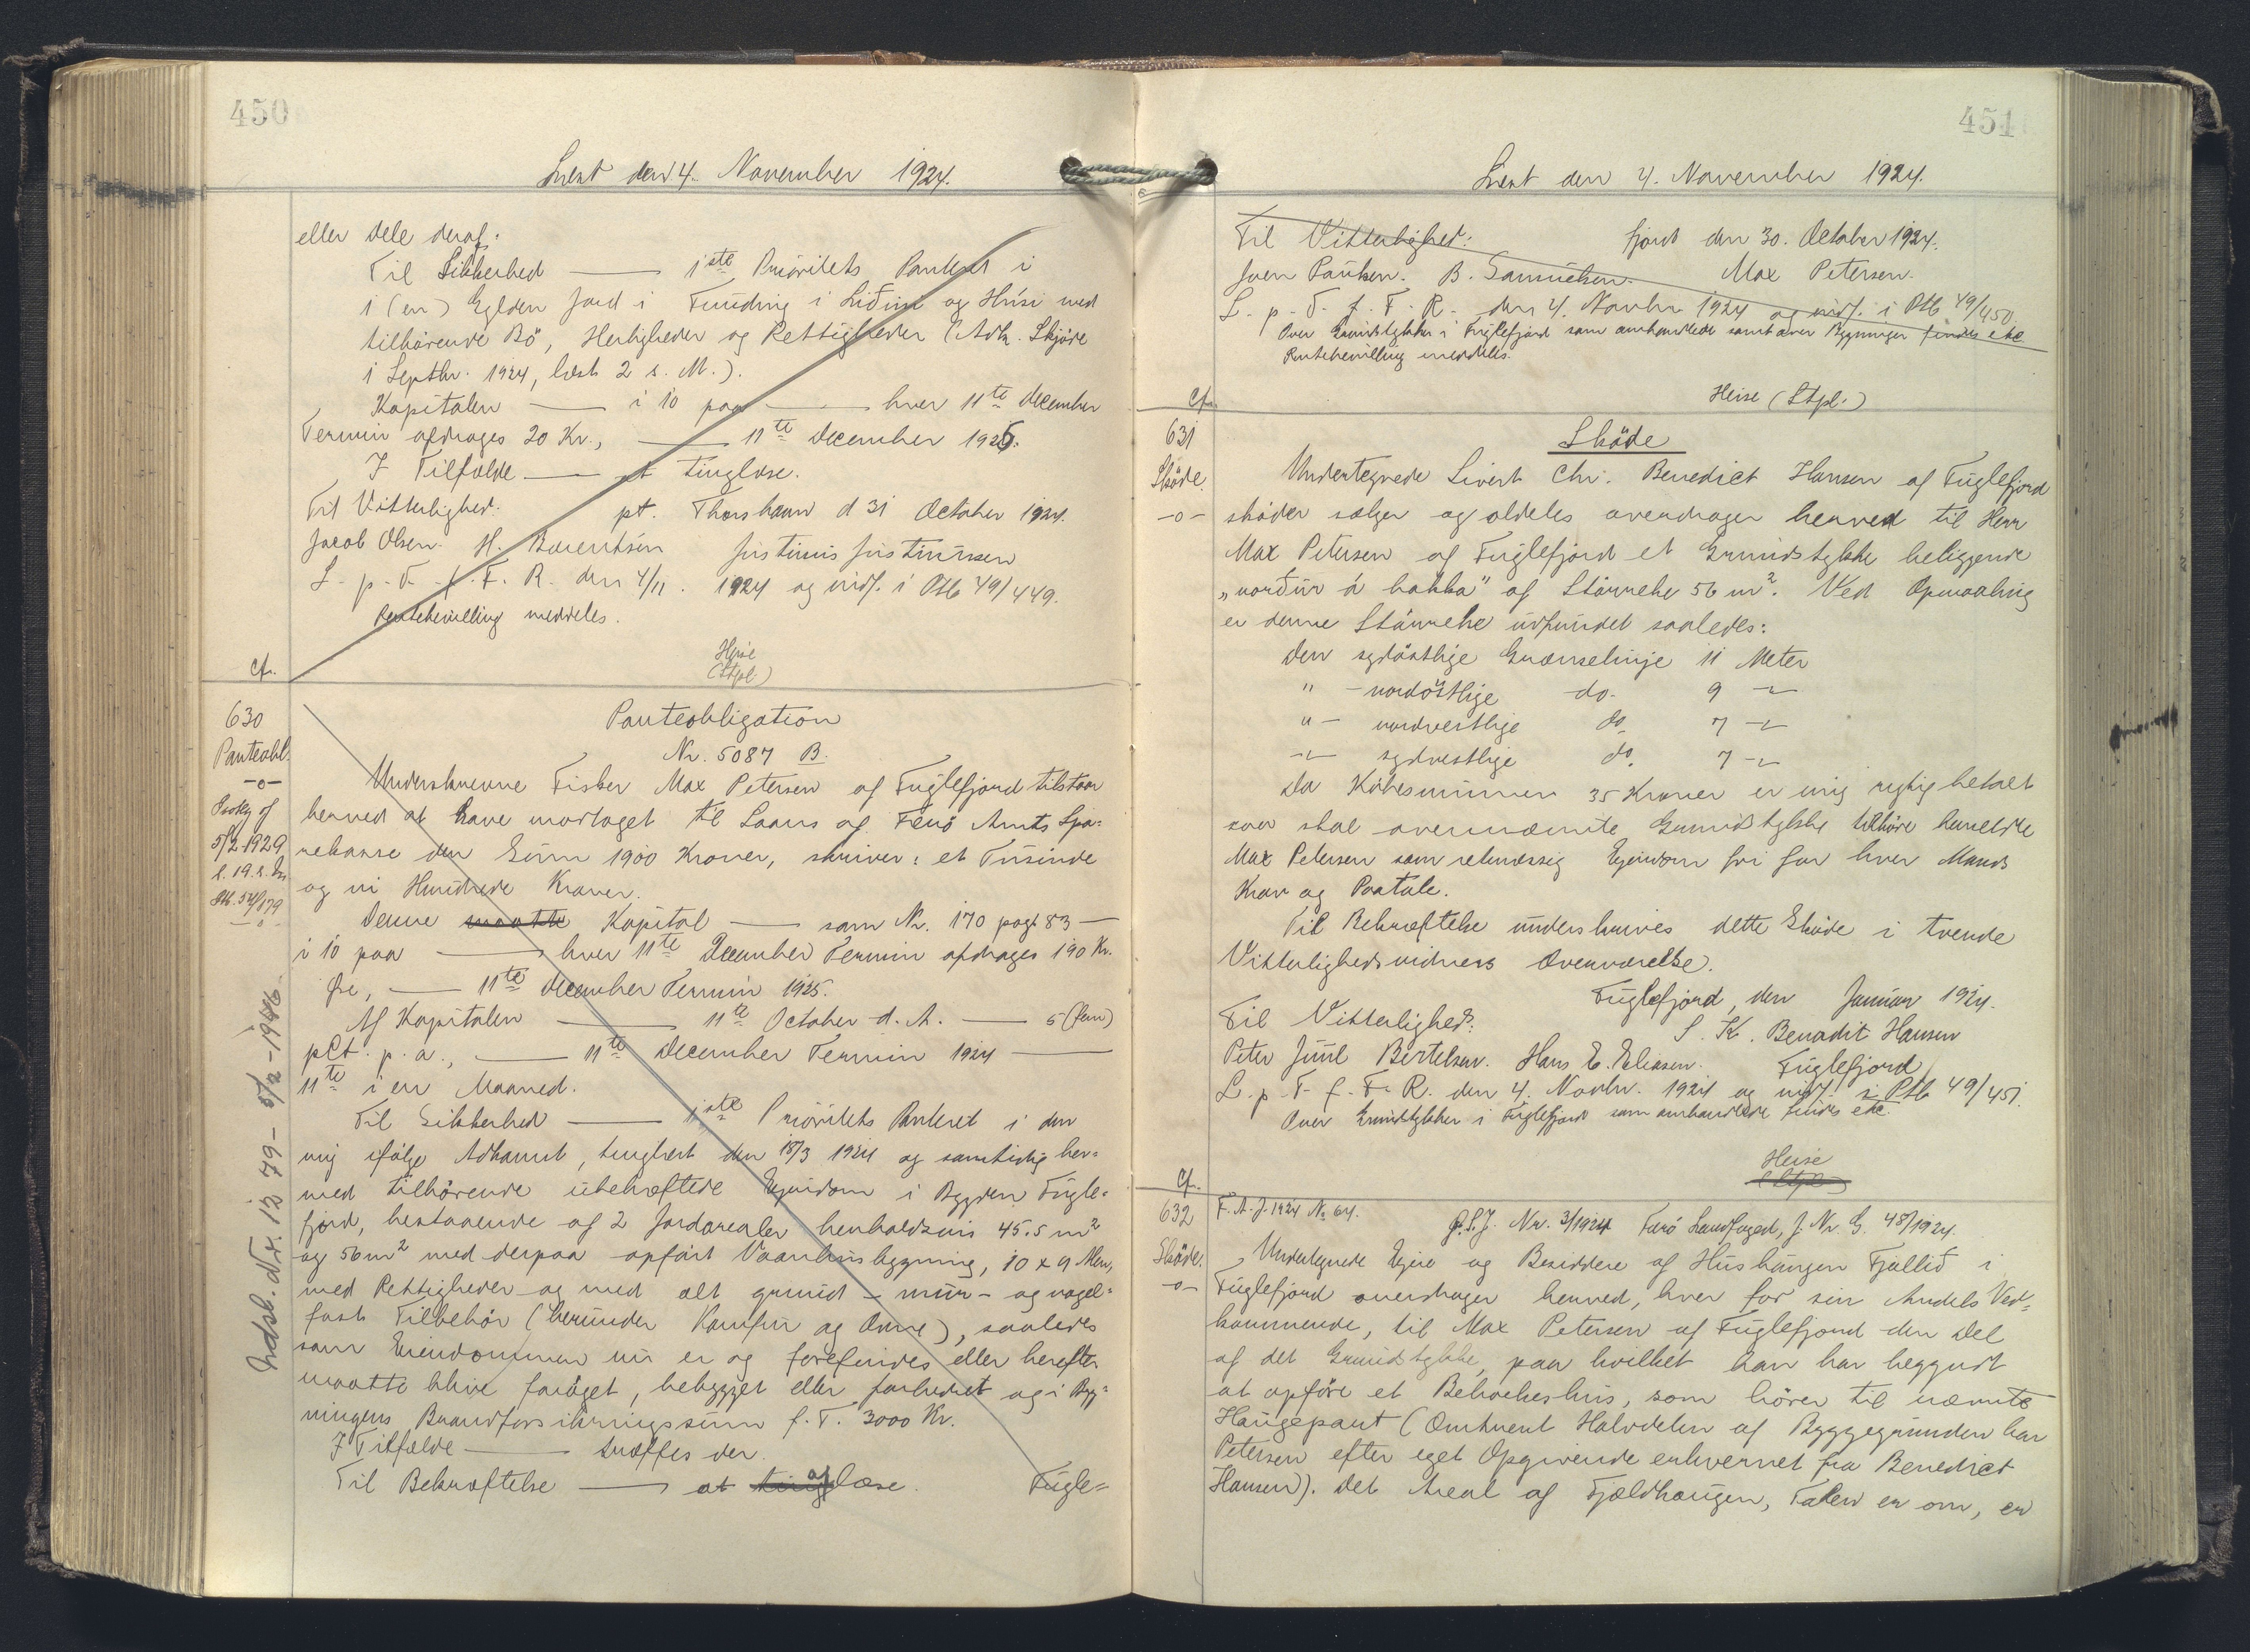 450
Læst den 4. November 1924.
eller dele deraf.
Til Sikkerhed — 1ste Prioritets Panteret i
1 (en) Gylden Jord i Funding i Lidini og Húsi med
tilhörende Bö, Herligheder og Rettigheder (Adk. Skjöde
i Septbr. 1924, læst 2 s. M.).
Kapitalen — i 10 paa — hver 11te December
Termin afdrages 20 Kr., — 11te December 1925.
I Tilfælde — at tinglæse.
Til Vitterlighed: pt. Thorshavn d 31 October 1924.
Jacob Olsen. H. Barentsen Justinus Justinussen
L. p. T. f. F. R. den 4/11. 1924 og indf. i Ptb 49/449.
Rentebevilling meddeles.
Heise
(Stpl.)
cf.
630
Panteobl.
-o-
5/2 1929
l. 19. s. M.
Ptb. 54/179
-o-
Indsb. Nr. 1279 - 5/2-1946
Panteobligation
Nr. 5087 B.
Underskrevne Fisker Max Petersen af Fuglefjord tilstaar
herved at have modtaget til Laans af Færö Amts Spa=
rekasse den Sum 1900 Kroner, skriver: et Tusinde
og ni Hundrede Kroner.
Denne maatte Kapital — som Nr. 170 pag. 83 —
i 10 paa — hver 11te December Termin afdrages 190 Kr.
Øre, — 11te December Termin 1925.
Af Kapitalen — 11te October d. A. — 5 (fem)
pCt. p. a., — 11te December Termin 1924 —
11te i en Maaned.
Til Sikkerhed — 1ste Prioritets Panteret i den
mig ifølge Adkomst, tinglæst den 18/3 1924 og samtidig her=
med tilhörende ubehæftede Ejendom i Bygden Fugle=
fjord, bestaaende af 2 Jordarealer henholdsvis 45.5 m2
og 56 m2 med derpaa opført Vaanhusbygning, 10 x 9 Alen,
med Rettigheder og med alt grund- mur- og nagel=
fast Tilbehör (herunder Komfur og Ovne), saaledes
som Ejendommen nu er og forefindes eller herefter
maatte blive forøget, bebygget eller forbedret og i Byg=
ningens Brandforsikringssum f. T. 3000 Kr.
I Tilfælde — træffes der.
Til Bekræftelse — at tinglæse aflæse. Fugle=
451
Læst den 4. November 1924.
Til Vitterlighed: fjord den 30. October 1924.
Joen Poulsen. B. Samuelsen. Max Petersen.
L. p. T. f. F. R. den 4. Novbr 1924 og indf. i Ptb 49/450.
Over Grundstykker i Fuglefjord som omhandlede samt over Bygninger findes etc
Rentebevilling meddeles.
Heise (Stpl.)
cf.
631
Sköde.
-o-
Sköde
Undertegnede Sivert Chr. Benedict Hansen af Fuglefjord
sköder sælger og aldeles overdrager herved til Herr
Max Petersen af Fuglefjord et Grundstykke beliggende
„norður á bakka" af Större lse 56 m2. Ved Opmaaling
er denne Störrelse udfundet saaledes:
Den sydöstlige Grænselinje 11 Meter
" - nordöstlige do. 9 -"-
" - nordvestlige do. 7 -"-
-"- sydvestlige do. 7 -"-
Da Köbesummen 35 Kroner er mig rigtig betalt
saa skal ovennævnte Grundstykke tilhöre bemeldte
Max Petersen som retmæssig Ejendom fri for hver Mands
Krav og Paatale.
Til Bekræftelse underskrives dette Sköde i tvende
Vitterlighedsvidners Overværelse.
Fuglefjord, den Januar 1924.
Til Vitterlighed: S. K. Benadit Hansen
Peter Juul Bertelsen. Hans E. Eliasen. Fuglefjord
L. p. T. f. F. R. den 4. Novbr. 1924 og indf. i Ptb 49/451.
Over Grundstykker i Fuglefjord som omhandlede findes etc.
Heise
(Stpl.)
cf.
632
Sköde.
-o-
F. A. J. 1924 No 64. G.S.J. Nr. 3/1924 Færö Landfoged, J. Nr. G. 48/1924.
Undertegnede Ejere og Besiddere af Húshaugen Fjallid i
Fuglefjord overdrager herved, hver for sin Andels Ved=
kommende, til Max Petersen af Fuglefjord den Del
af det Grundstykke, paa hvilket han har begyndt
at opføre et Beboelseshus, som hörer til nævnte
Haugepart (Omtrent Halvdelen af Byggegrunden har
Petersen efter eget Opgivende erhvervet fra Benedict
Hansen). Det Areal af Fjældhaugen, Talen er om, er